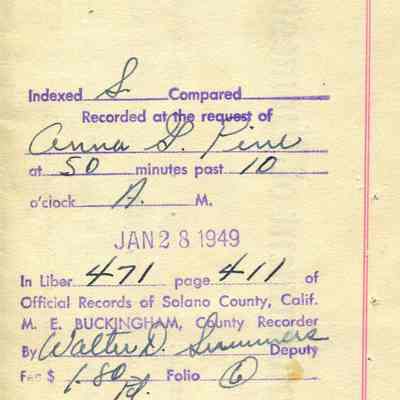 Indexed S. Compared
Recorded at the request of
Anna G. Pine
at 50 minutes past 10
o'clock A. M.
JAN 28 1949
In Liber 471 page 411 of
Official Records of Solano County, Calif.
M. E. BUCKINGHAM, County Recorder
By Walter D. Simmers Deputy
Fee $ 1.80 Folio 6
Pd.